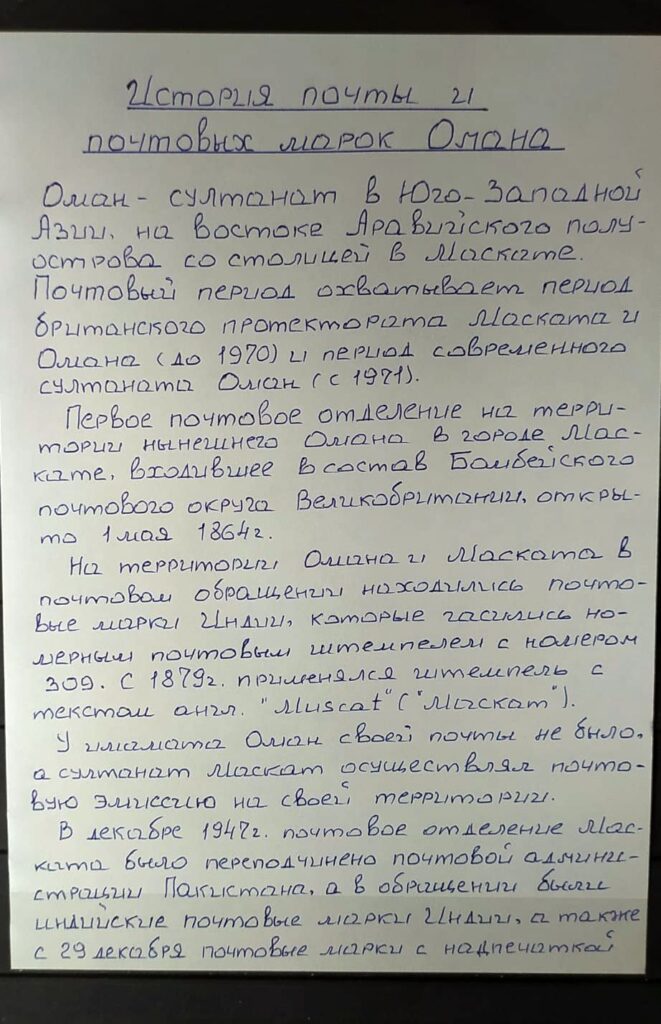 История почты и
почтовых марок Омана
Оман - султанат в Юго-Западной
Азии, на востоке Аравийского полу-
острова со столицей в Маскате.
Почтовый период охватывает период
британского протектората Маската и
Омана (до 1970) и период современного
султаната Оман (с 1971).
Первое почтовое отделение на терри-
тории нынешнего Омана в городе Мас-
кате, входившее в состав Бомбейского
почтового округа Великобритании, откры-
то 1 мая 1864г.
На территории Омана и Маската в
почтовом обращении находились почто-
вые марки Индии, которые гасились но-
мерным почтовым штемпелем с номером
309. С 1879г. применялся штемпель с
текстом англ. "Muscat" ("Маскат").
У имамата Оман своей почты не было,
а султанат Маскат осуществлял почто-
вую эмиссию на своей территории.
В декабре 1947г. почтовое отделение Мас-
ката было переподчинено почтовой админи-
страции Пакистана, а в обращении были
индийские почтовые марки Индии, а также
с 29 декабря почтовые марки с надпечаткой